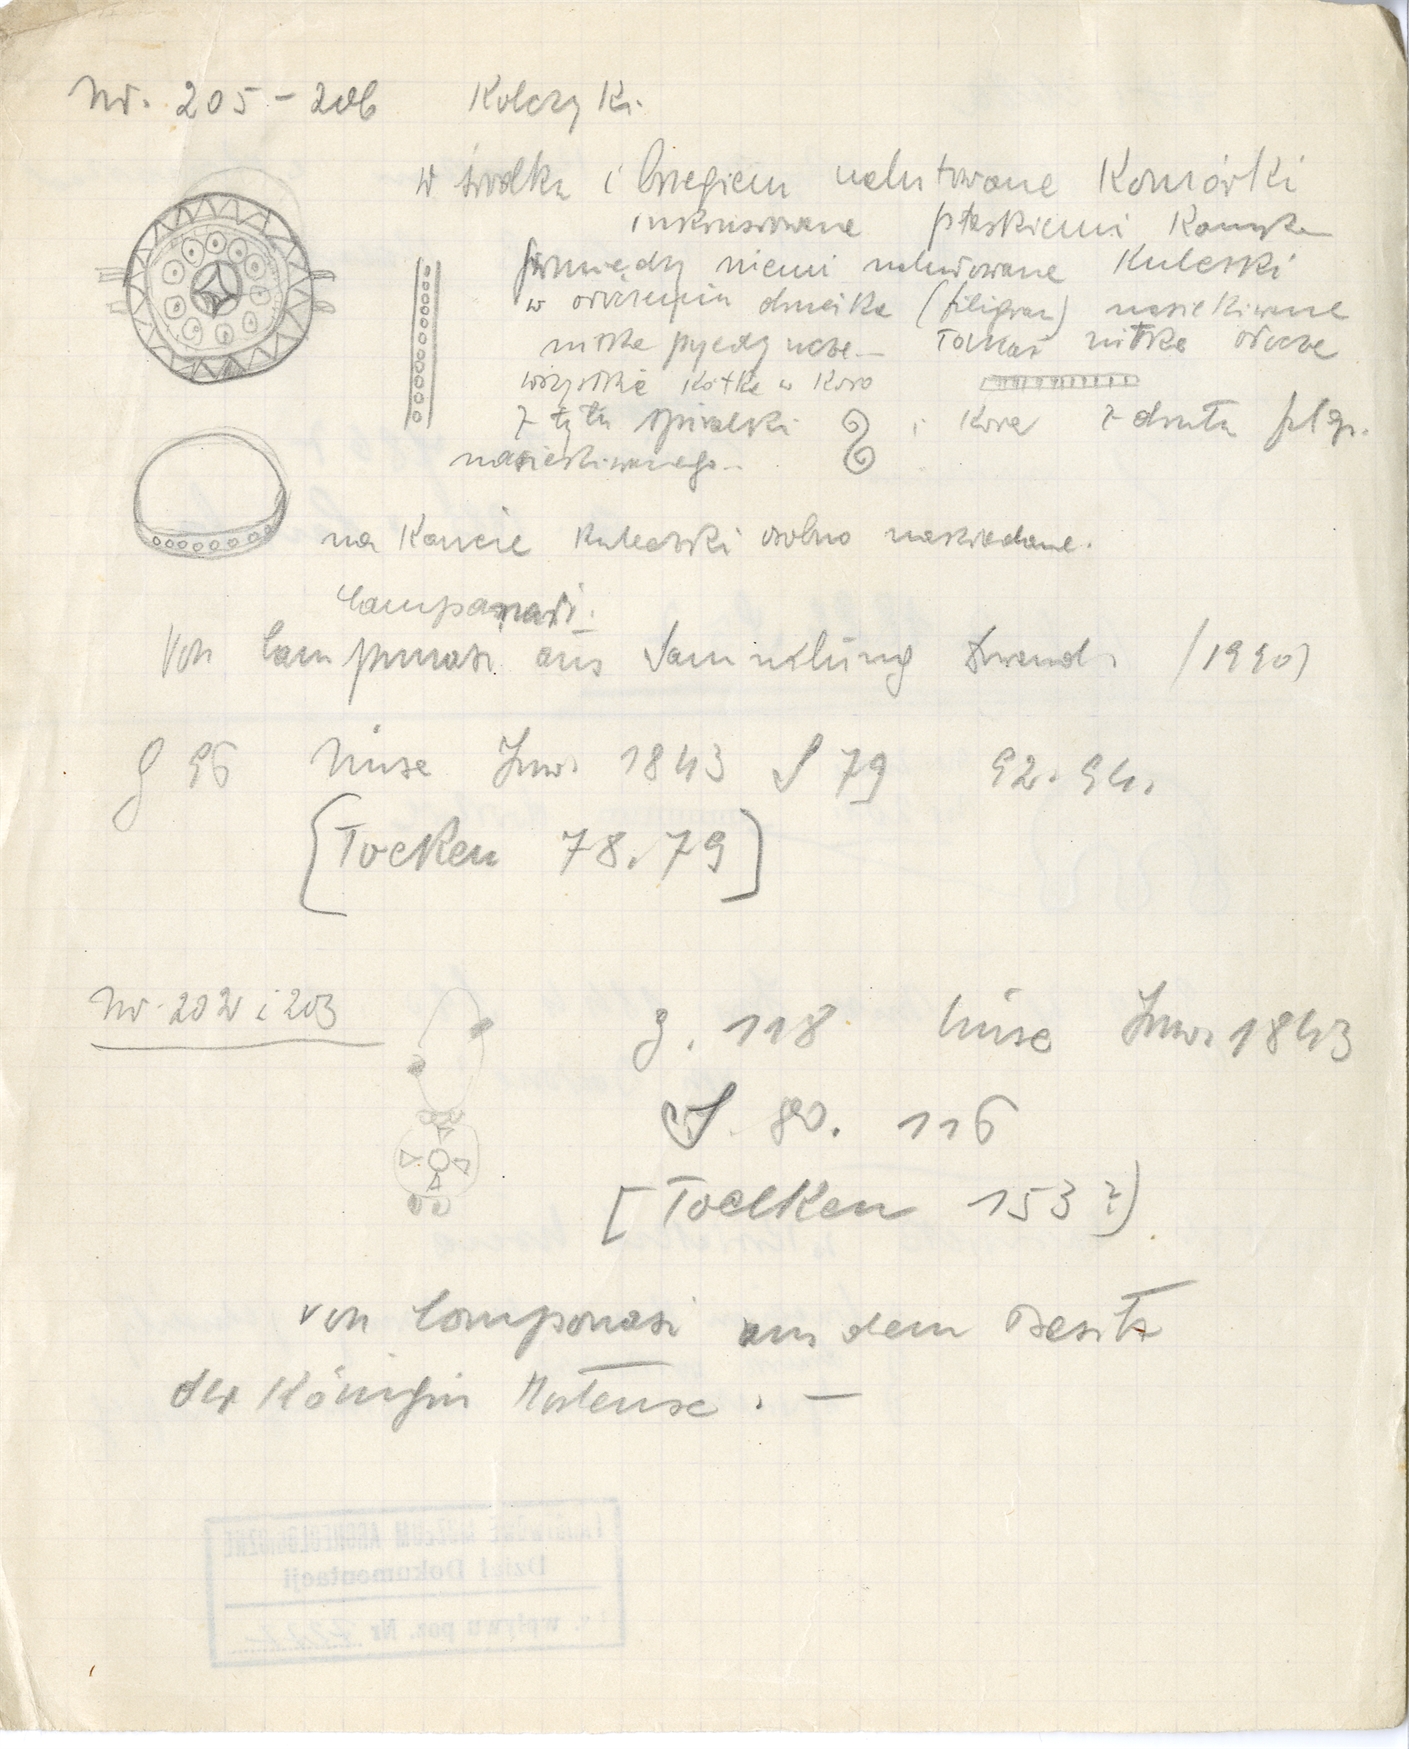 Nr. 205 - 206 Kolczyki.
w środku i brzegiem nalutowane Komórki
inkrustowane płaskiemi Kamyka
pomiędzy niemi nalutowane Kuleczki
w otoczeniu drucika (filigran) nasiekiwane
nitka pojedyncze - nitka
wszystkie Kółka w Koło
z tyłu spiralki i z drutu filgr.
nasiekiwanego -
na Kancie Kuleczki osobno naskładane.
Campanari.
Von Campanari aus Sammlung /1990)
g 96 Inw. 1843 S 79 92. 94.
[Toelken 78. 79]
Nr. 202 i 203
g. 118 Inw. 1843
S. 80. 116
[Toelken 153?)
von Campanari aus dem Besitz
der Königin Hortense. —
PAŃSTWOWE MUZEUM ARCHEOLOGICZNE
Dział Dokumentacji
wpływu poz. Nr